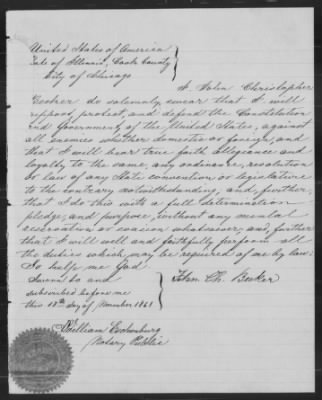 United States of America
State of Illinois, Cook County
City of Chicago
I, John Christopher
Becker do solemnly swear that I will
support, protect, and defend the Constitution
and Government of the United States, against
all enemies whether domestic or foreign, and
that I will bear true faith allegiance and
loyalty to the same, any ordinance, resolution
or law of any State convention or legislature
to the contrary notwithstanding; and, further,
that I do this with a full determination
pledge, and purpose, without any mental
reservation or evasion whatsoever; and, further
that I will well and faithfully perform all
the duties which may be required of me by law;
So help me God
Sworn to and
subscribed before me
this 18th day of November 1861
John Ch. Becker
William
Notary Public